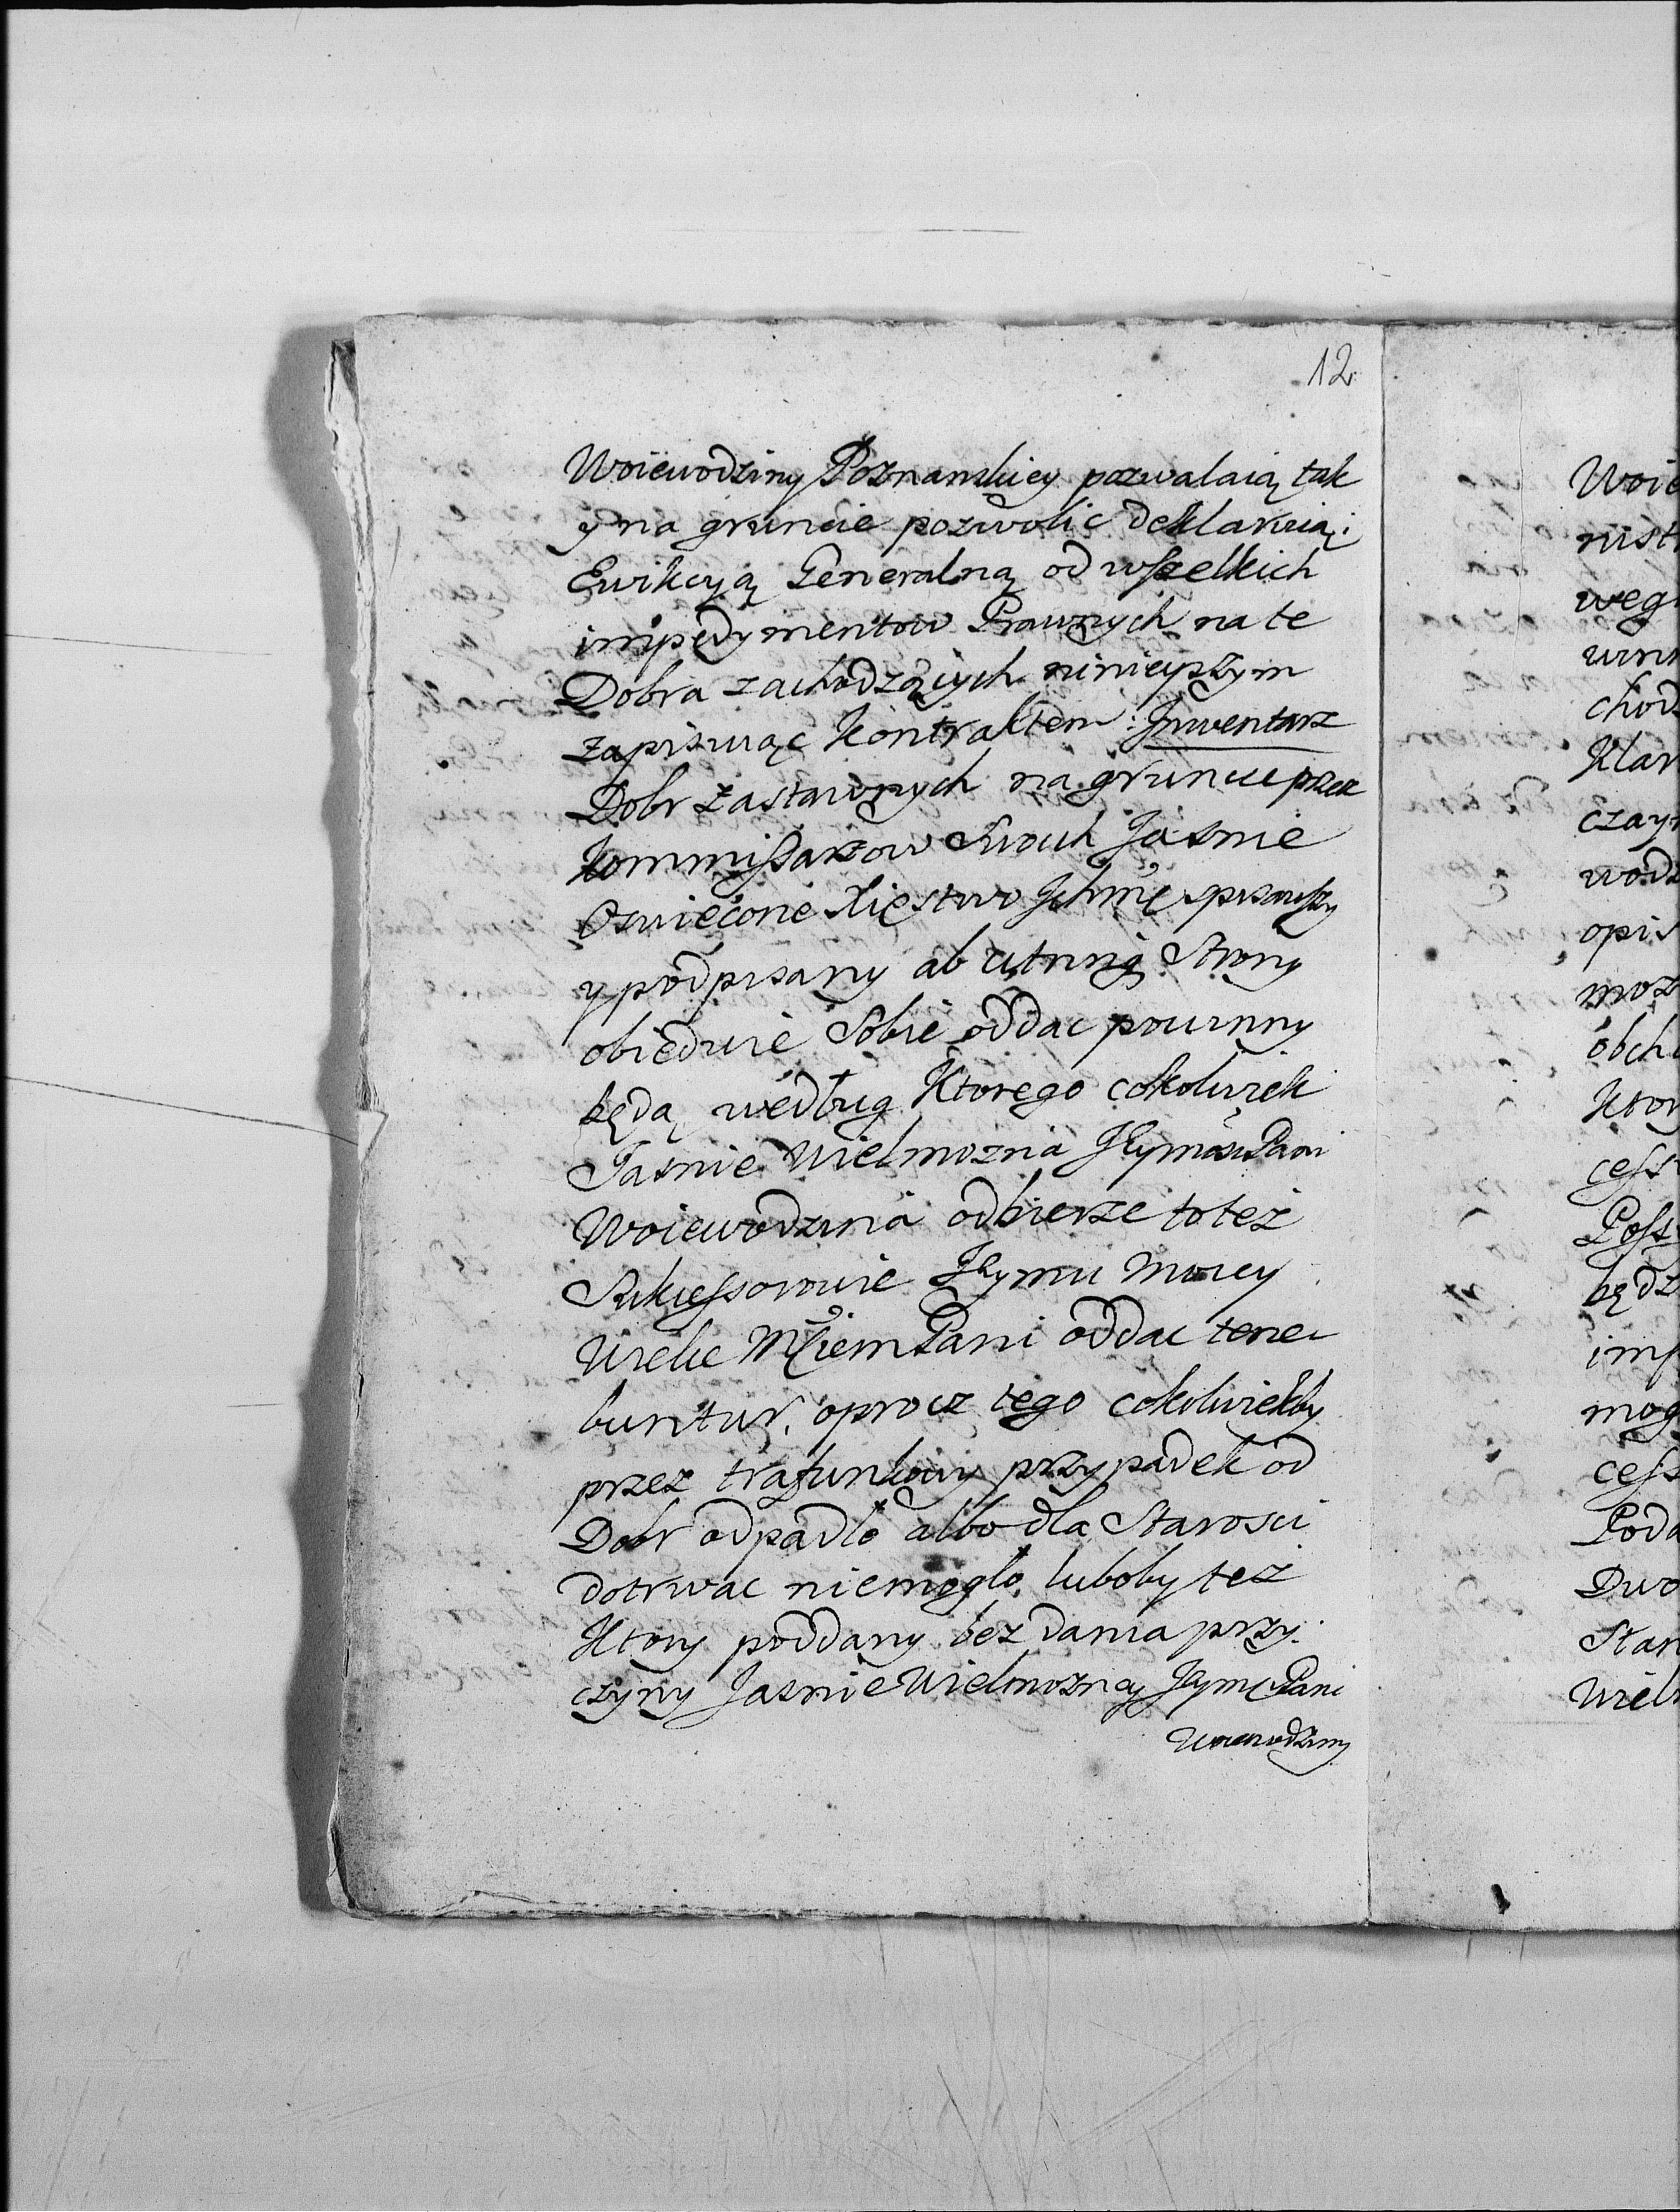 12
Woiewodziny Poznanskiey pozwalaią tak
y na gruncie pozwolic deklaruią:
Ewikcyą Generalną od wszelkich
impedymentow Prawnych na te
Dobra zachodzących ninieyszym
zapisuiąc Kontraktem: Inwentarz
Dobr zastawnych na gruncie przez
Kommissarzow Swoich Jasnie
Oswiecone Xięstwo Ichmc spisawszy
y podpisany ab utrinq Strony
obiedwie Sobie oddac powinny
będą, według Ktorego cokolwiek
Jasnie Wielmozna Jeymosc Pani
Woiewodzina odbierze to tez
Sukcessorowie Jeymu
Wielce Msciem Pani oddac tene
buntur. oprocz tego cokolwiekby
przez trafunkowy przypadek od
Dobr odpadło albo dla Starosci
dotrwac niemogło, luboby tez
Ktory poddany bez dania przy:
czyny Jasnie Wielmozney Jeymc Pani
Woiewodziny
Woie
nist
weg
chod
Klar
czay
wodz
opis
moz
obch
Ktor
cess
Poss
będz
imp
mog
cess
Podd
Dwo
Star
Wiel